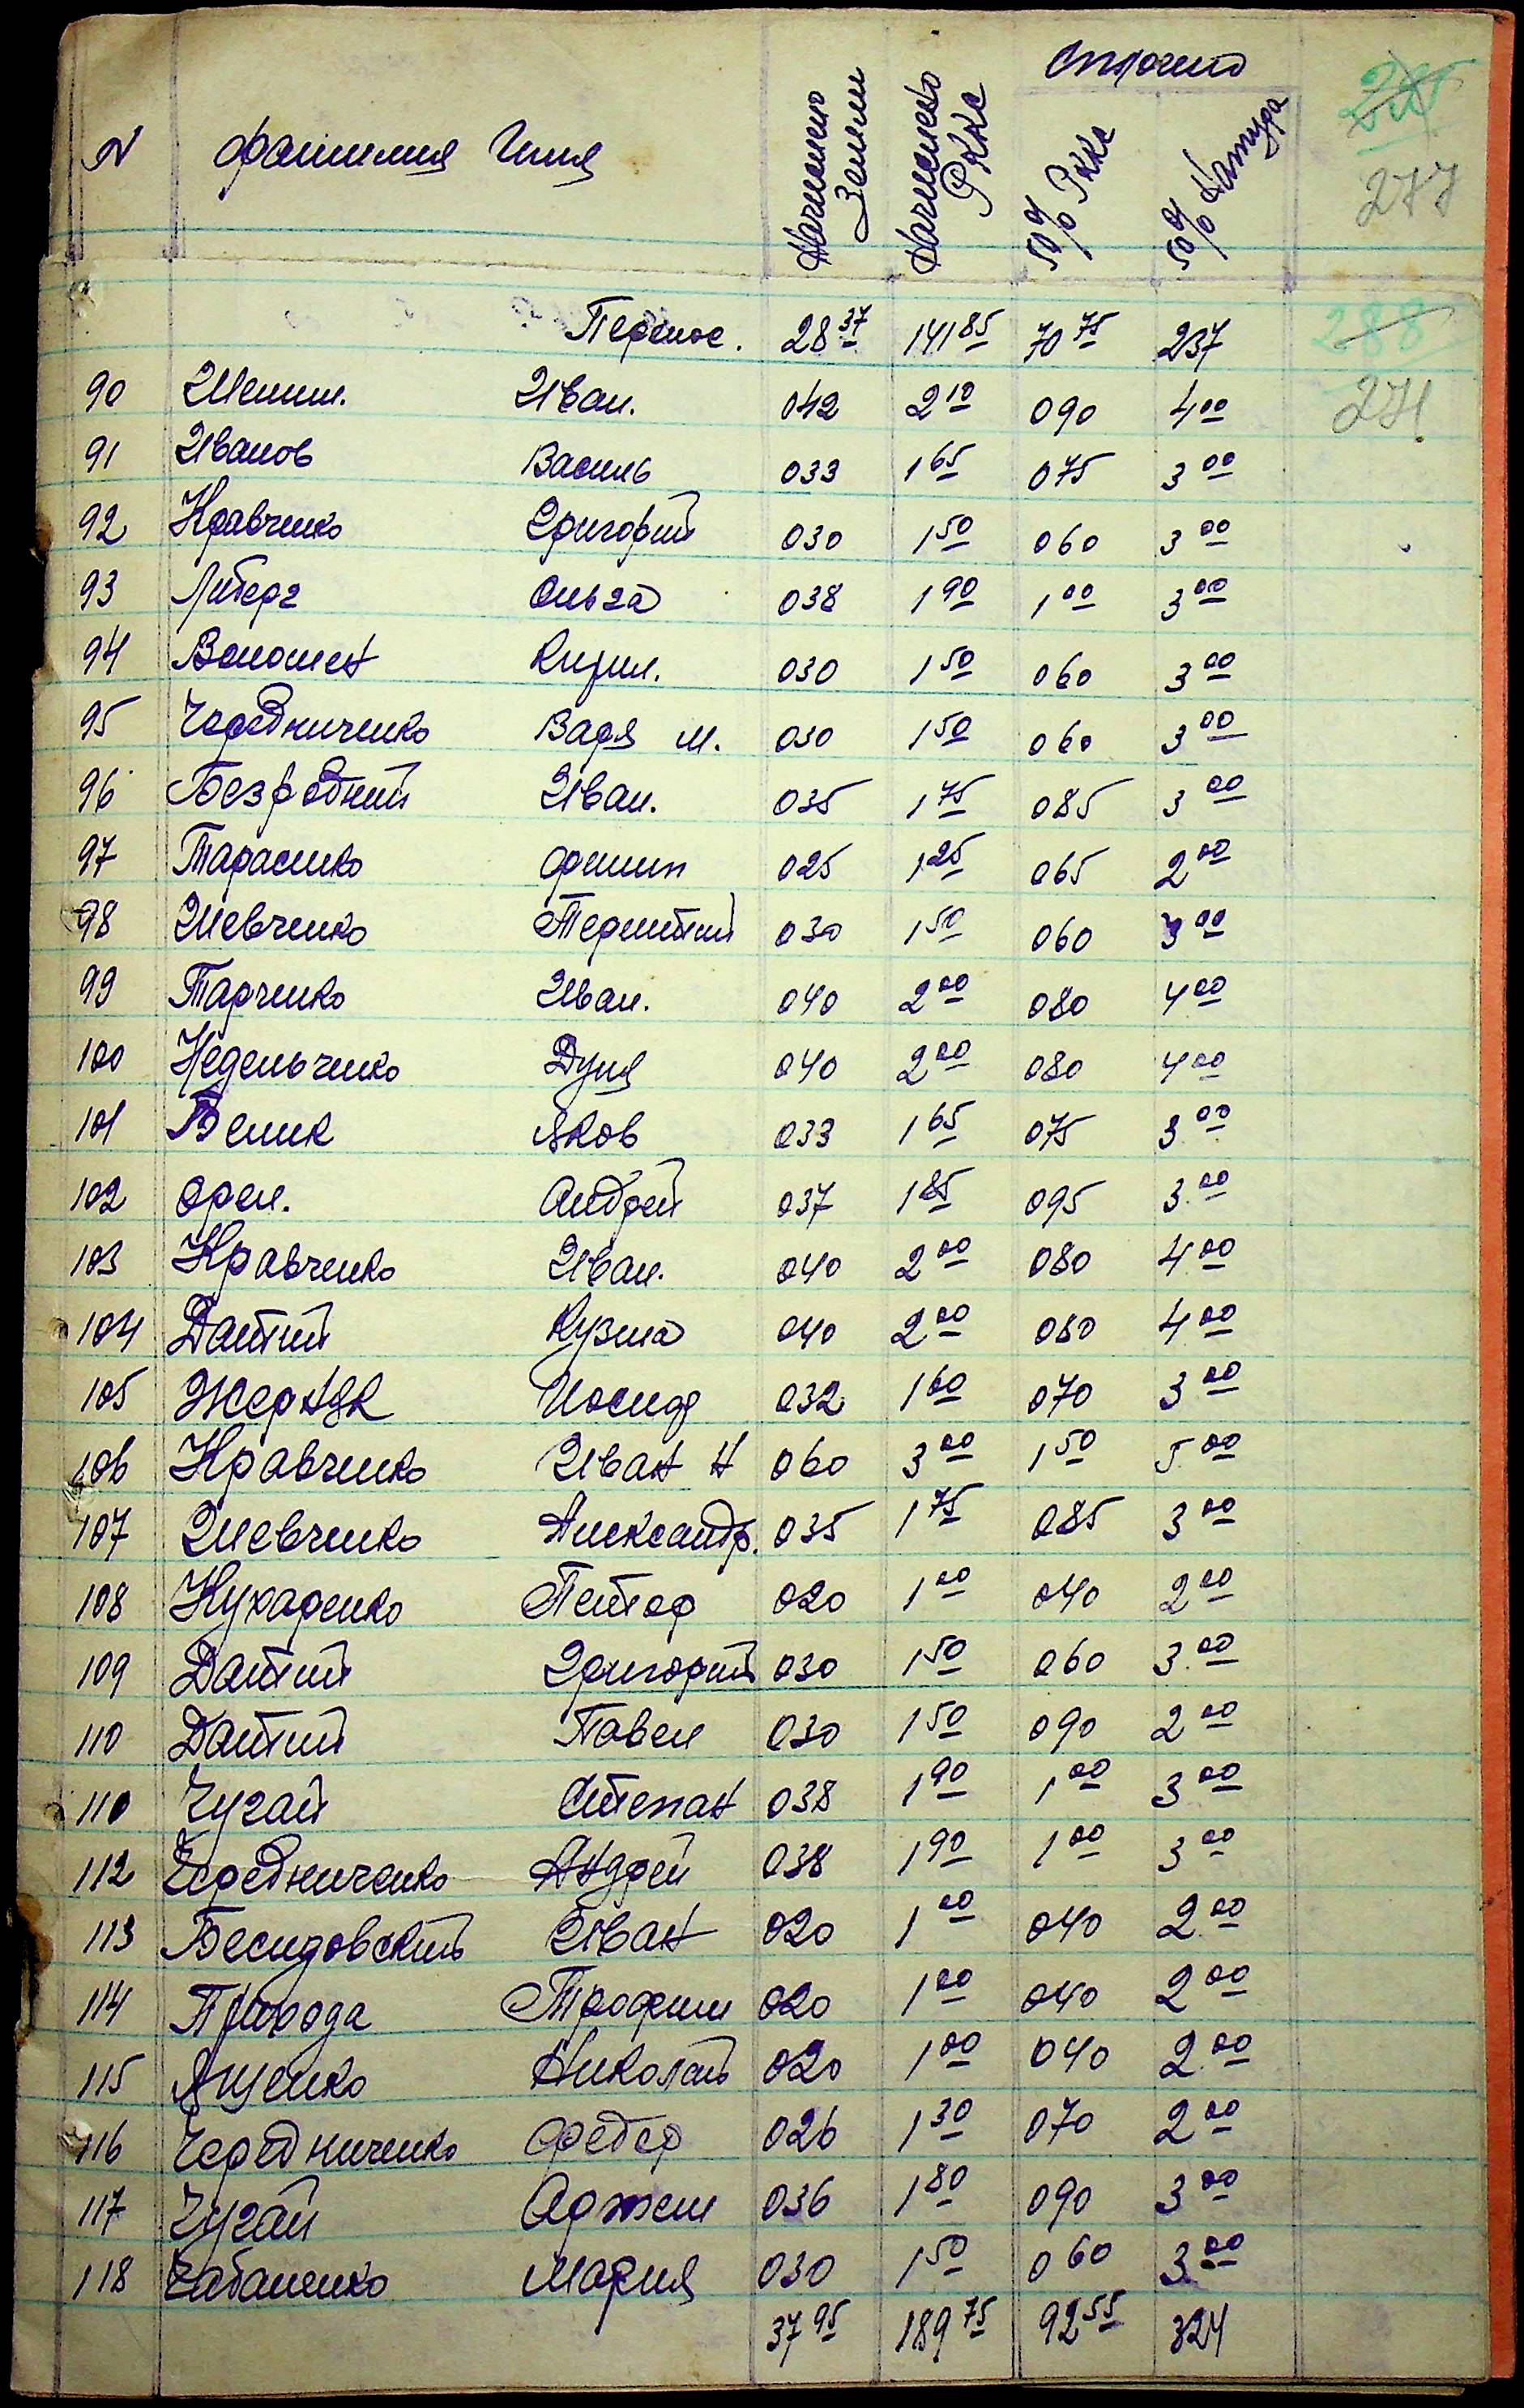 Оплочено
N Фамилия Имя Начислено Земли Начислено РККС 50% РККС 50% Натура
277
Перенос. 28 37 141 85 70 75 237
288
90 Шемш. Иван. 042 2 10 090 4 00
271
91 Иванов Василь 033 1 65 075 3 00
92 Кравченко Григорий 030 1 50 060 3 00
93 Ольга 038 1 90 1 00 3 00
94 Волошен Кирил. 030 1 50 060 3 00
95 Чередниченко Варя М. 030 1 50 060 3 00
96 Безродний Иван. 035 1 75 085 3 00
97 Тарасенко Филип 025 1 25 065 2 00
98 Шевченко Терентий 030 1 50 060 3 00
99 Тарченко Иван. 040 2 00 080 4 00
100 Недельченко Дуня 040 2 00 080 4 00
101 Белик Яков 033 1 65 075 3 00
102 Орел. Андрей 037 1 85 095 3 00
103 Кравченко Иван. 040 2 00 080 4 00
104 Датий Кузма 040 2 00 080 4 00
105 Жерняк Иосиф 032 1 60 070 3 00
106 Кравченко Иван Н 060 3 00 1 50 5 00
107 Шевченко Александр. 035 1 75 085 3 00
108 Кухаренко Петор 020 1 00 040 2 00
109 Датий Григорий 030 1 50 060 3 00
110 Датий Павел 030 1 50 090 2 00
110 Чугай Степан 038 1 90 1 00 3 00
112 Чередниченко Андрей 038 1 90 1 00 3 00
113 Бесидовский Иван 020 1 00 040 2 00
114 Природа Трофим 020 1 00 040 2 00
115 Ященко Николай 020 1 00 040 2 00
116 Чередниченко Федер 026 1 30 070 2 00
117 Чугай Артем 036 1 80 090 3 00
118 Чабаненко Мария 030 1 50 060 3 00
37 95 189 75 92 55 324